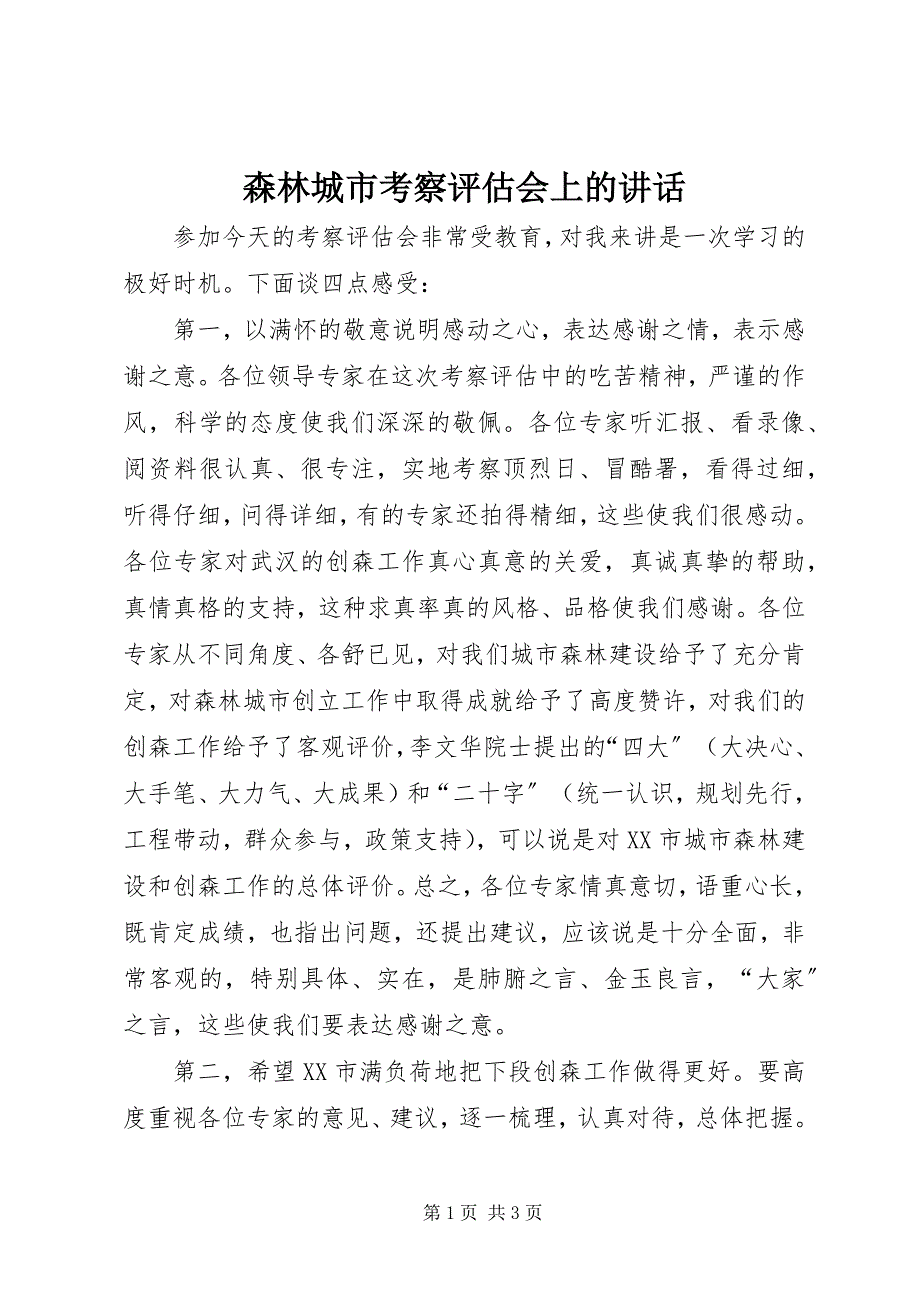 森林城市考察评估会上的讲话
参加今天的考察评估会非常受教育，对我来讲是一次学习的
极好时机。下面谈四点感受：
第一，以满怀的敬意说明感动之心，表达感谢之情，表示感
谢之意。各位领导专家在这次考察评估中的吃苦精神，严谨的作
风，科学的态度使我们深深的敬佩。各位专家听汇报、看录像、
阅资料很认真、很专注，实地考察顶烈日、冒酷署，看得过细，
听得仔细，问得详细，有的专家还拍得精细，这些使我们很感动。
各位专家对武汉的创森工作真心真意的关爱，真诚真挚的帮助，
真情真格的支持，这种求真率真的风格、品格使我们感谢。各位
专家从不同角度、各舒已见，对我们城市森林建设给予了充分肯
定，对森林城市创立工作中取得成就给予了高度赞许，对我们的
创森工作给予了客观评价，李文华院士提出的“四大〞（大决心、
大手笔、大力气、大成果）和“二十字〞（统一认识，规划先行，
工程带动，群众参与，政策支持），可以说是对 XX 市城市森林建
设和创森工作的总体评价。总之，各位专家情真意切，语重心长，
既肯定成绩，也指出问题，还提出建议，应该说是十分全面，非
常客观的，特别具体、实在，是肺腑之言、金玉良言，“大家〞
之言，这些使我们要表达感谢之意。
第二，希望 XX 市满负荷地把下段创森工作做得更好。要高
度重视各位专家的意见、建议，逐一梳理，认真对待，总体把握。
第 1 页 共 3 页